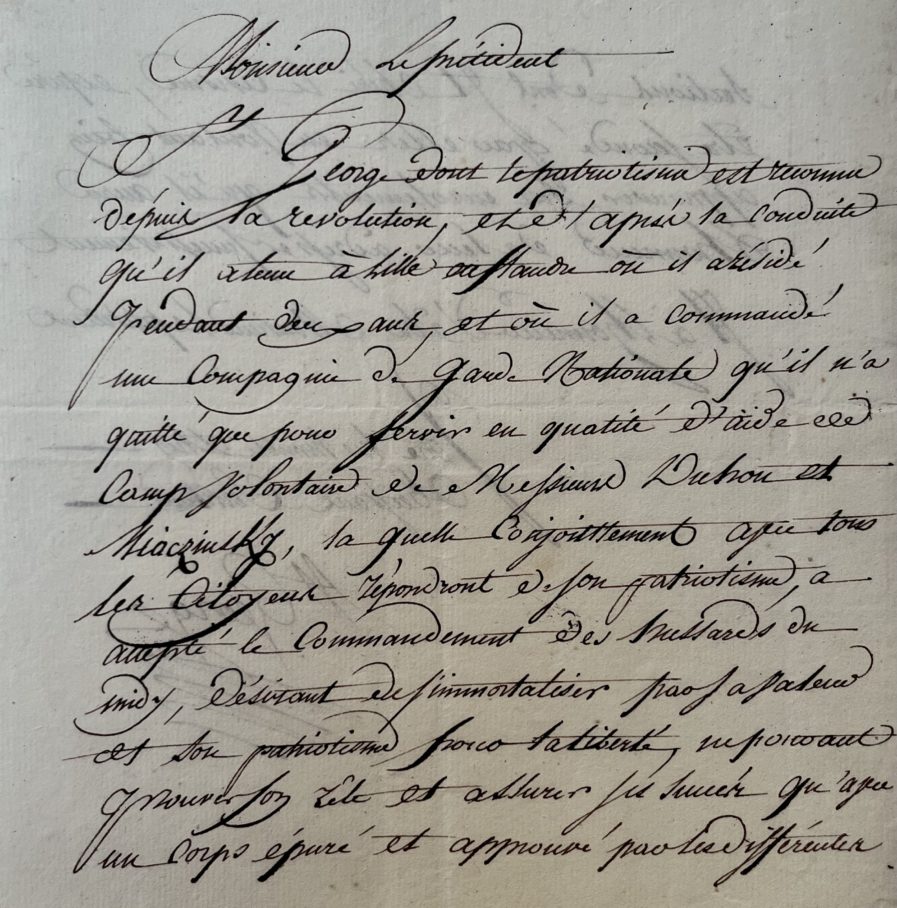 Monsieur Le président
St George dont le patriotisme est reconnu
dépuis la revolution, et d'aprés la conduite
qu'il a tenu à Lille en flandre où il a résidé
pendant deux ans, et où il a commandé
une Compagnie de Garde Nationale qu'il n'a
quitté que pour servir en qualité d'aide de
Camp volontaire de Messieurs Duhou et
Miaczinsky, la quelle Conjointtement avec tous
les Citoyens répondront de son patriotisme, a
accepté le Commandement des hussards du
midy, désirant de s'immortaliser par sa valeur
et son patriotisme pour la liberté, ne pouvant
prouver son zéle et assurer ses succés qu'avec
un Corps épuré et approuvé par les différentes